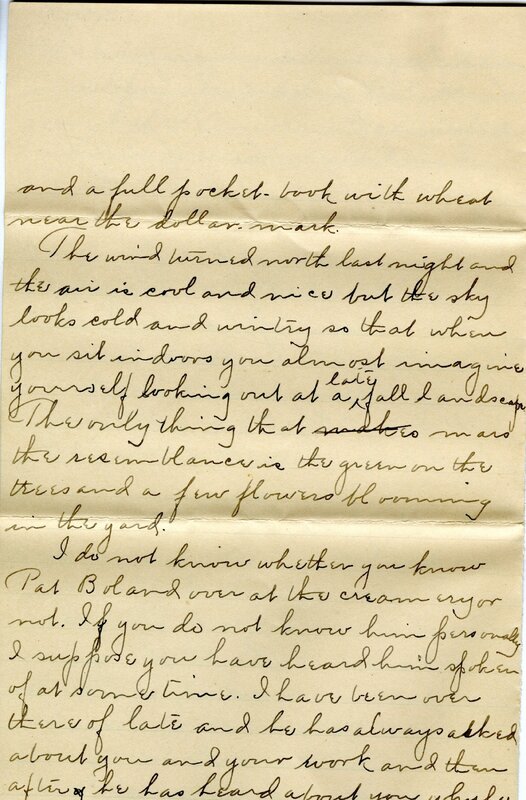 and a full pocket-book with wheat
near the dollar-mark.
The wind turned north last night and
the air is cool and nice but the sky
looks cold and wintry so that when
you sit indoors you almost imagine
yourself looking out at a late fall landscape
The only thing that makes mars
the resemblance is the green on the
trees and a few flowers blooming
in the yard.
I do not know whether you know
Pat Boland over at the creamery or
not. If you do not know him personally
I suppose you have heard him spoken
of at some time. I have been over
there of late and he has always asked
about you and your work and then
after he has heard about you